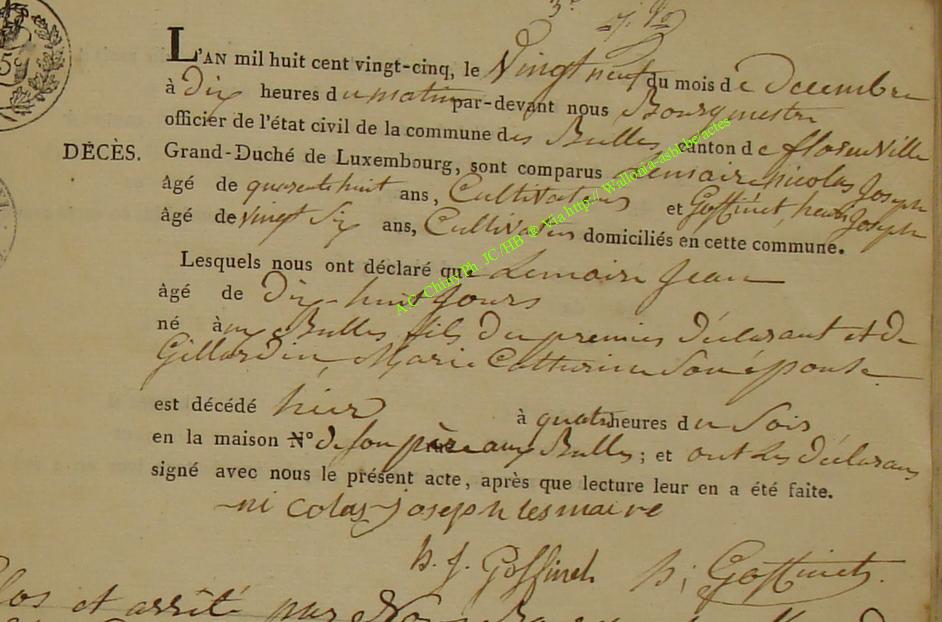 L'AN mil huit cent vingt-cinq, le Vingt neuf du mois de Decembre
à Dix heures du matin par-devant nous Bourgmestre
officier de l'état civil de la commune des Bulles, canton de florenville
DÉCÈS. Grand-Duché de Luxembourg, sont comparus Lemaire nicolas Joseph
âgé de quarante huit ans, Cultivateur et Goffinet, henri Joseph
âgé de vingt Six ans, Cultivateur domiciliés en cette commune.
Lesquels nous ont déclaré que Lemaire Jean
âgé de Dix-huit Jours
né aux Bulles fils du premier déclarant et de
Gillardin, Marie Catherine Son épouse
est décédé hier à quatre heures du Soir
en la maison N° de son père aux Bulles; et ont Les déclarans
signé avec nous le présent acte, après que lecture leur en a été faite.
nicolas joseph lesmaire
h. j. Goffinet Goffinet.
Clos et arrêté par Nous
A.C. Chiny Ph. JC /HB @ Via http:// Wallonia-asbl.be/actes